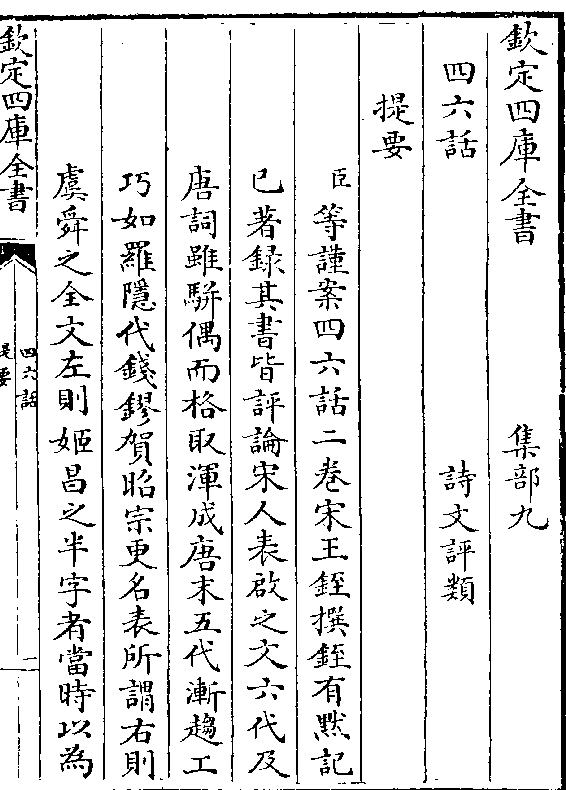 欽定四庫全書 集部九
四六話 詩文評類
提要
臣等謹案四六話二卷宋王銍撰銍有默記
已著錄其書皆評論宋人表啟之文六代及
唐詞雖駢偶而格取渾成唐末五代漸趨工
巧如羅隱代錢鏐賀昭宗更名表所謂右則
虞舜之全文左則姬昌之半字者當時以為
欽定四庫全書
四六話
提要